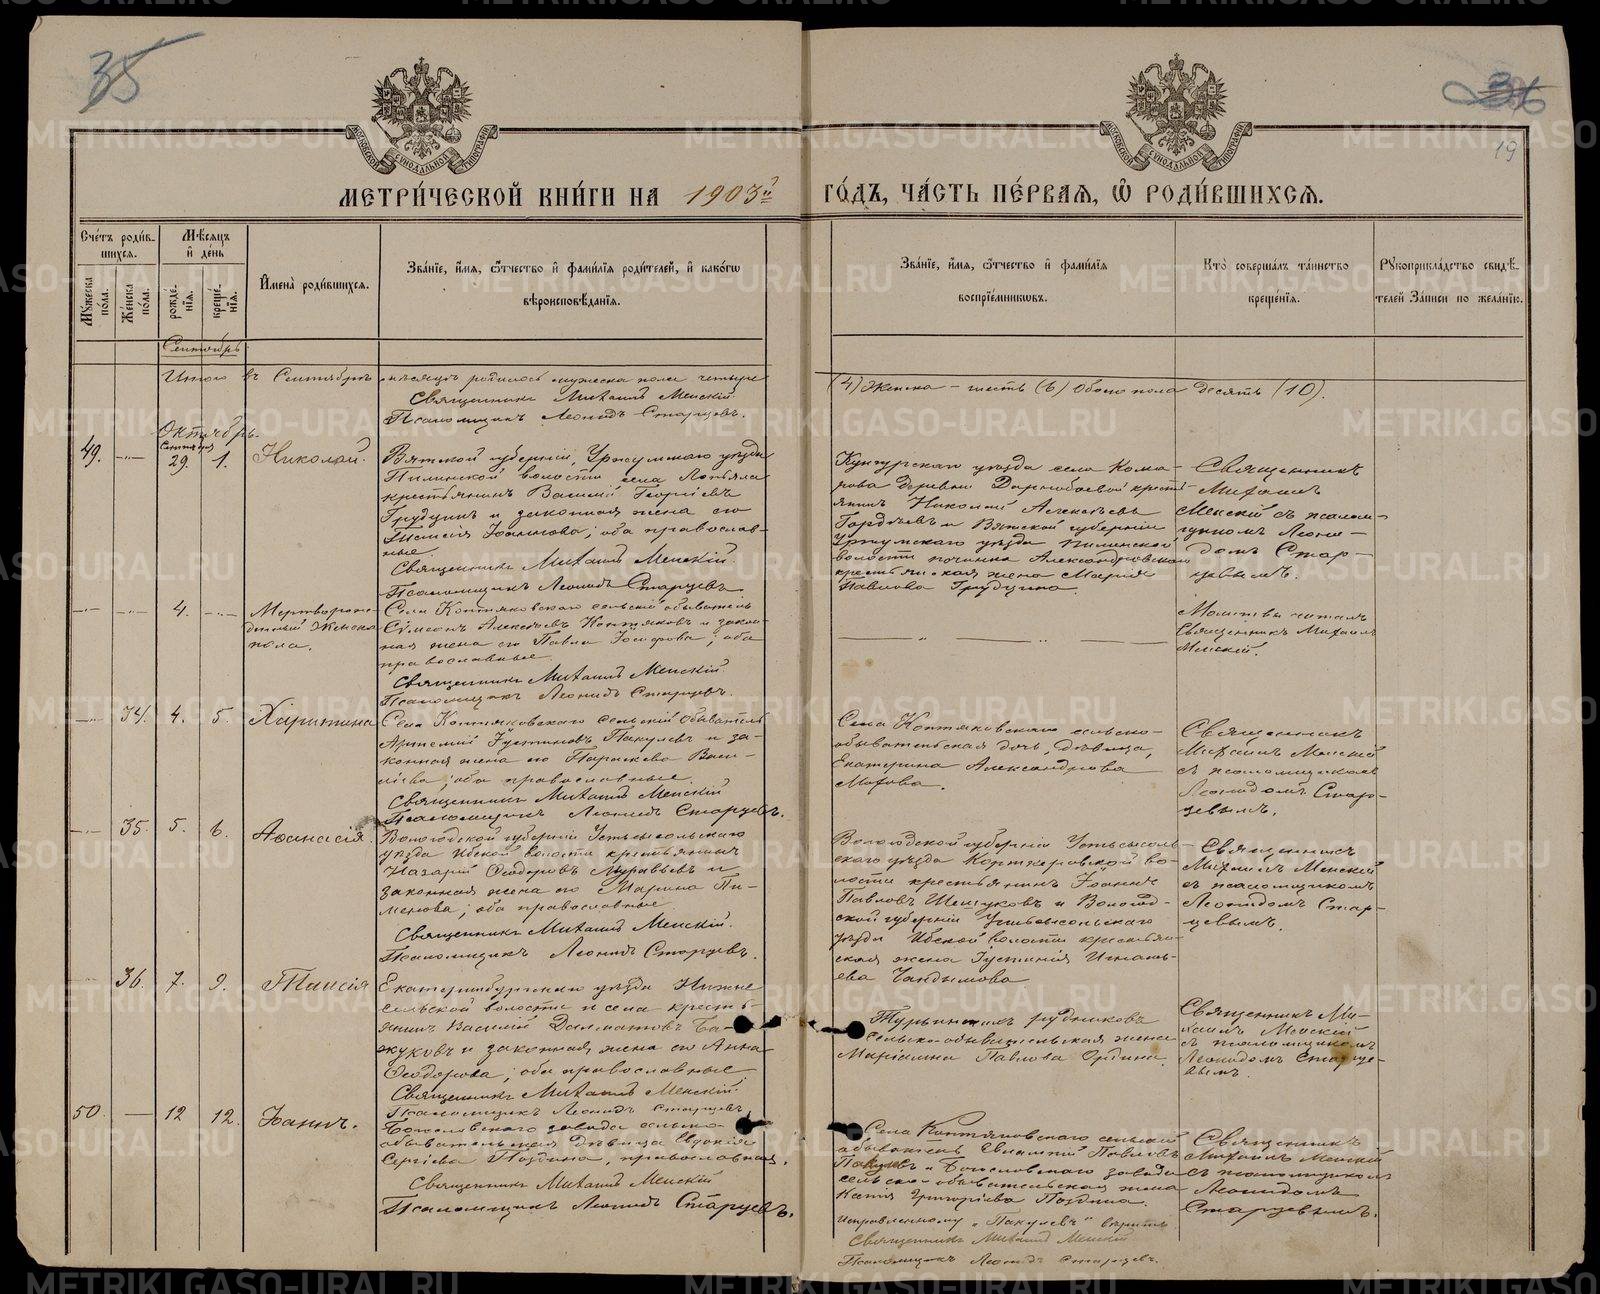 35
36
19
МЕТРИ́ЧЕСКОЙ КНИ́ГИ НА 1903й ГО́ДЪ, ЧА́СТЬ ПЕ́РВАЯ, Ѽ РОДИ́ВШИХСЯ.
Сче́тъ роди́в-
шихся.
Мꙋ́жеска по́ла.
Же́нска по́ла.
Мѣ́сяцъ
и҆ де́нь
рожде́нїя.
креще́нїя.
И҆мена̀ роди́вшихся.
Зва́нїе, и҆́мя, ѻ҆́тчество и҆ фами́лїя роди́телей, и҆ како́гѡ
вѣроисповѣ́данїя.
Зва́нїе, и҆́мя, ѻ҆́тчество и҆ фами́лїя
воспрїе́мниковъ.
Кто̀ соверша́лъ та́инство
креще́нїя.
Рꙋкоприкла́дство свидѣ́-
телей за́писи по жела́нїю.
Сентябрь
Итого въ Сентябрѣ мѣсяцѣ родилось мужеска пола четыре (4) женска - шесть (6) обоего пола десять (10).
Священникъ Михаилъ Менскій.
Псаломщикъ Леонидъ Старцевъ.
Октябрь.
49. Сентября 29. 1. Николай.
Вятской губерніи, Уржумскаго уѣзда
Пилинской волости села Лопьяла
крестьянинъ Василій Георгіевъ
Грудцинъ и законная жена его
Таисія Іоаннова; оба православ-
ные.
Священникъ Михаилъ Менскій.
Псаломщикъ Леонидъ Старцевъ.
Кунгурскаго уѣзда села Кома-
рова деревни крест-
янинъ Николай Алексѣевъ
Гордѣевъ и Вятской губерніи
Уржумскаго уѣзда Пилинской
волости починка Александровскаго
крестьянская жена Марія
Павлова Грудцина.
Священникъ
Михаилъ
Менскій съ псалом-
щикомъ Леони-
домъ Стар-
цевымъ.
4. Мертворож-
денный женска
пола.
Села Коптяковскаго сельскій обыватель
Симеонъ Алексѣевъ Коптяковъ и закон-
ная жена его Павла Іосифова; оба
православные.
Священникъ Михаилъ Менскій.
Псаломщикъ Леонидъ Старцевъ.
Молитвы читалъ
Священникъ Михаилъ
Менскій.
34. 4. 5. Харитина
Села Коптяковскаго сельскій обыватель
Артемій Іустиновъ Пакулевъ и за-
конная жена его Параскева Васи-
ліева; оба православные.
Священникъ Михаилъ Менскій
Псаломщикъ Леонидъ Старцевъ.
Села Коптяковскаго сельско-
обывательская дочь, дѣвица,
Екатерина Александрова
Священникъ
Михаилъ Менскій
съ псаломщикомъ
Леонидомъ Стар-
цевымъ.
35. 5. 6. Аѳанасія.
Вологодской губерніи Устьсысольскаго
уѣзда Ибской волости крестьянинъ
Назарій Ѳеодоровъ Муравьевъ и
законная жена его Марина Пи-
менова; оба православные.
Священникъ Михаилъ Менскій.
Псаломщикъ Леонидъ Старцевъ.
Вологодской губерніи Устьсысоль-
скаго уѣзда Корткеровской во-
лости крестьянинъ Іоаннъ
Павловъ Шешуковъ и Вологод-
ской губерніи Устьсысольскаго
уѣзда Ибской волости крестьян-
ская жена Іустинія Игнать-
ева Чандымова
Священникъ
Михаилъ Менскій
съ псаломщикомъ
Леонидомъ Стар-
цевымъ.
36. 7. 9. Таисія
Екатеринбургскаго уѣзда Нижне-
сельской волости и села кресть-
янинъ Василій Далматовъ Ба-
жуковъ и законная жена его Анна
Ѳеодорова; оба православные.
Священникъ Михаилъ Менскій.
Псаломщикъ Леонидъ Старцевъ.
Турьинскихъ рудниковъ
сельско-обывательская жена
Маріамна Павлова
Священникъ Ми-
хаилъ Менскій
съ псаломщикомъ
Леонидомъ Старце-
вымъ.
50. 12 12. Іоаннъ.
Богословскаго завода сельско-
обывательская дѣвица Евдокія
Сергіева Поздина, православная.
Священникъ Михаилъ Менскій
Псаломщикъ Леонидъ Старцевъ.
Села Коптяковскаго сельскій
обыватель Евлампій Павловъ
Пакулевъ и Богословскаго завода
сельско-обывательская жена
Ксенія Григоріева Поздина.
Исправленному "Пакулевъ" вѣрить
Священникъ Михаилъ Менскій
Псаломщикъ Леонидъ Старцевъ.
Священникъ
Михаилъ Менскій
съ псаломщикомъ
Леонидомъ
Старцевымъ.
METRIKI.GASO-URAL.RU